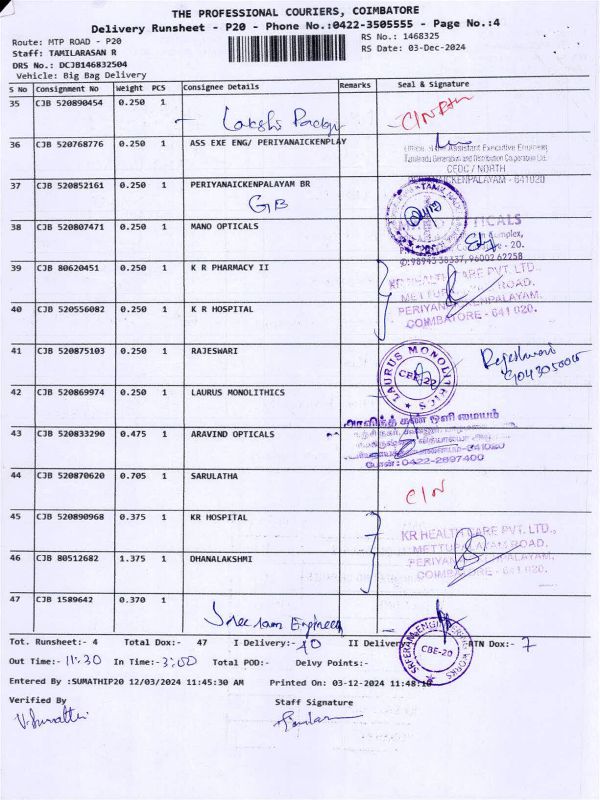 THE PROFESSIONAL COURIERS, COIMBATORE
Delivery Runsheet - P20 - Phone No.:0422-3505555 - Page No.:4
Route: MTP ROAD - P20
RS No.: 1468325
Staff: TAMILARASAN R
RS Date: 03-Dec-2024
DRS No.: DCJB146832504
Vehicle: Big Bag Delivery
S No Consignment No Weight PCS Consignee Details Remarks Seal & Signature
35 CJB 520890454 0.250 1 C/N
36 CJB 520768776 0.250 1 ASS EXE ENG/ PERIYANAICKENPLAY
Assistant Executive Engineer
Tamilnadu Generation and Distribution Corporation Ltd.
CEDC / NORTH
37 CJB 520852161 0.250 1 PERIYANAICKENPALAYAM BR
GB
38 CJB 520807471 0.250 1 MANO OPTICALS
39 CJB 80620451 0.250 1 K R PHARMACY II
KR HEALTH CARE PVT. LTD.,
METTUR ROAD,
PERIYANAICKENPALAYAM,
COIMBATORE - 641 020.
40 CJB 520556082 0.250 1 K R HOSPITAL
41 CJB 520875103 0.250 1 RAJESWARI
Rajeshwari
42 CJB 520869974 0.250 1 LAURUS MONOLITHICS
LAURUS MONOLITHICS
CBE-20
43 CJB 520833290 0.475 1 ARAVIND OPTICALS
அரவிந்த் கண் ஒளி மையம்
போன்: 0422-2697400
44 CJB 520870620 0.705 1 SARULATHA C/N
45 CJB 520890968 0.375 1 KR HOSPITAL
KR HEALTH CARE PVT. LTD.,
46 CJB 80512682 1.375 1 DHANALAKSHMI
47 CJB 1589642 0.370 1
Sree ram Engineer
CBE-20
Tot. Runsheet:- 4 Total Dox:- 47 I Delivery:- 40 II Delivery RTN Dox:- 7
Out Time:- 11:30 In Time:- 3:00 Total POD:- Delvy Points:-
Entered By :SUMATHIP20 12/03/2024 11:45:30 AM Printed On: 03-12-2024 11:48:10
Verified By Staff Signature
V. Sumathi